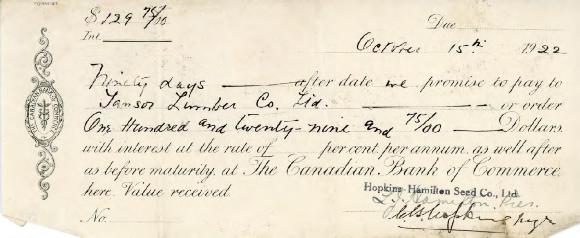 $129 75/00 Due
Int.
October 15th 1922
Ninety days after date we promise to pay to
Tansor Lumber Co. Ltd. or order
One Hundred and twenty-nine and 75/00 Dollars
with interest at the rate of per cent. per annum. as well after
as before maturity, at The Canadian Bank of Commerce
here. Value received.
Hopkins-Hamilton Seed Co., Ltd.
Hamilton, Pres.
No. Hopkins Mgr
THE CANADIAN BANK OF COMMERCE